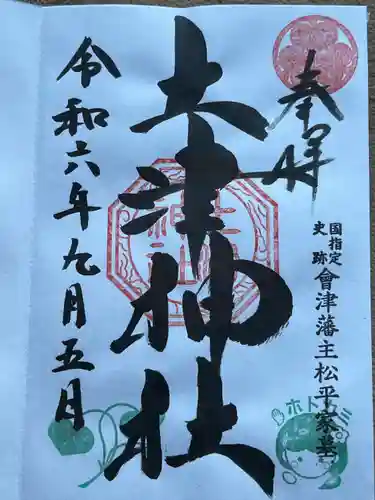 奉拝
国指定
史跡
會津藩主松平家墓
土津神社
令和六年九月五日